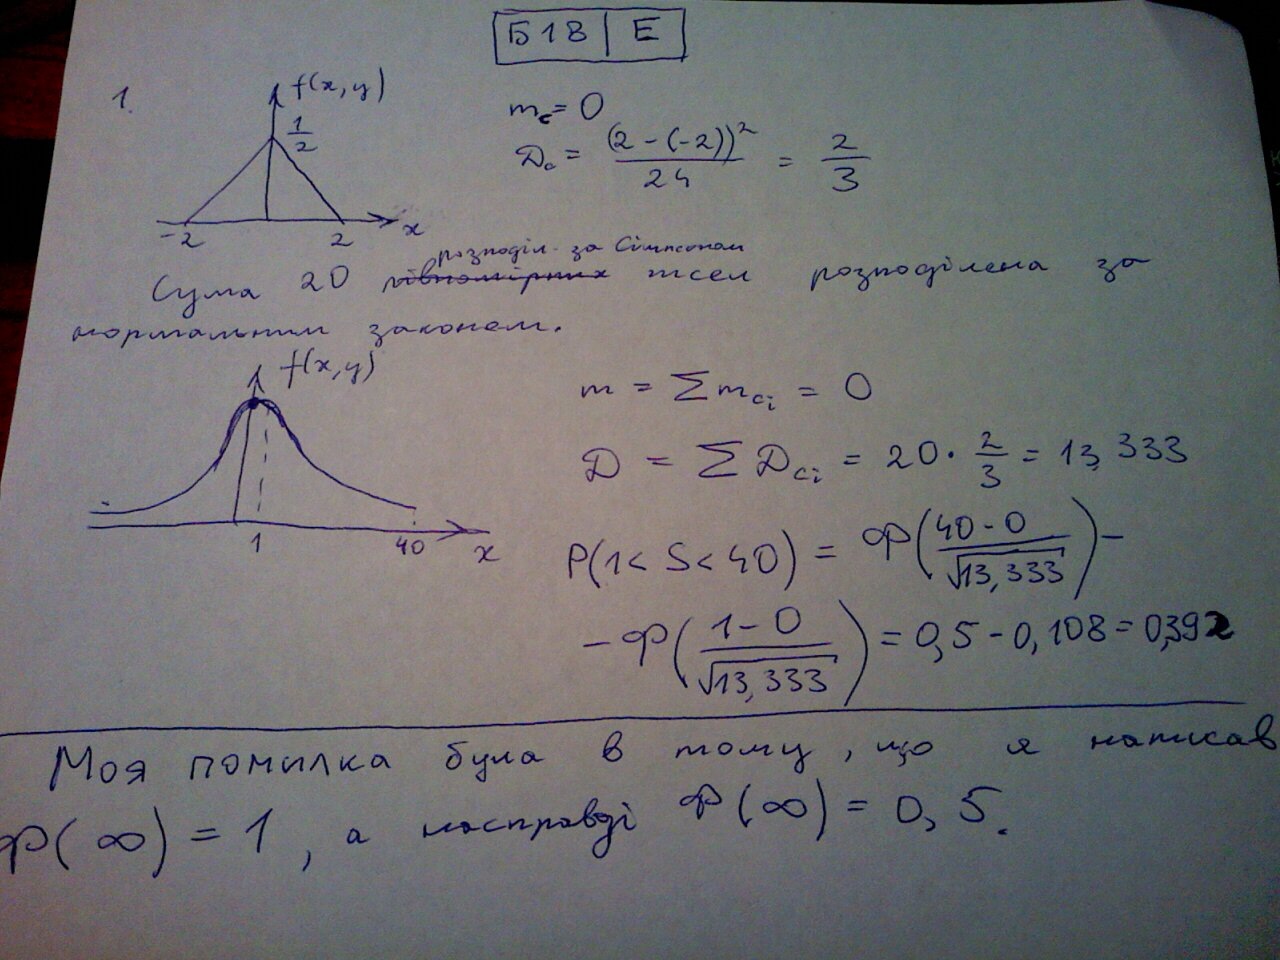 Б18 | Е
1.
f(x,y)
1/2
-2 2 x
m_c = 0
D_c = (2-(-2))² / 24 = 2/3
розподіл. за Сімпсоном
Сума 20 рівномірних чисел розподілена за
нормальним законом.
f(x,y)
1 40 x
m = Σ m_ci = 0
D = Σ D_ci = 20 · 2/3 = 13,333
P(1 < S < 40) = Ф((40-0)/√13,333) -
- Ф((1-0)/√13,333) = 0,5 - 0,108 = 0,392
Моя помилка була в тому, що я написав
Ф(∞) = 1, а насправді Ф(∞) = 0,5.